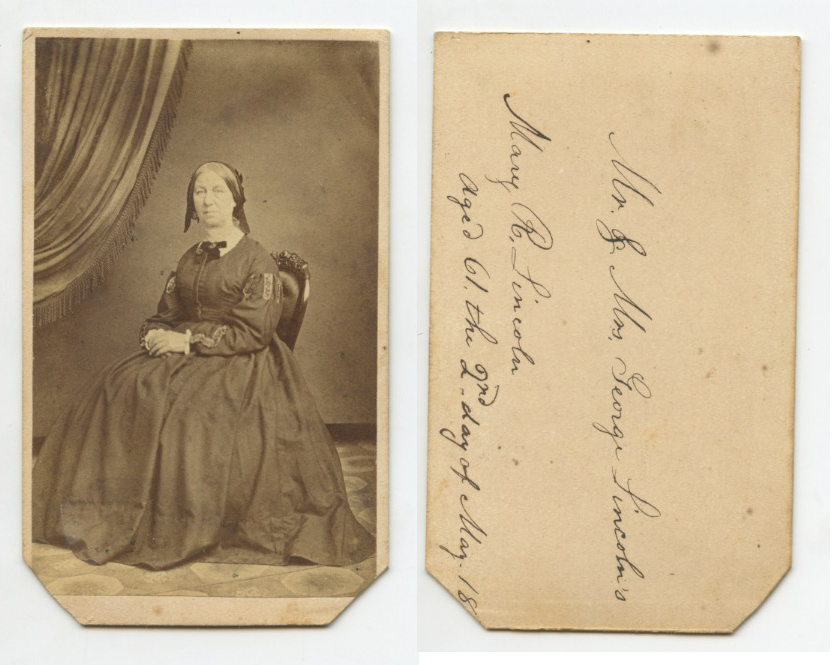 Mr. & Mrs. George Lincoln's
Mary R. Lincoln
aged 61. the 2nd day of May. 18